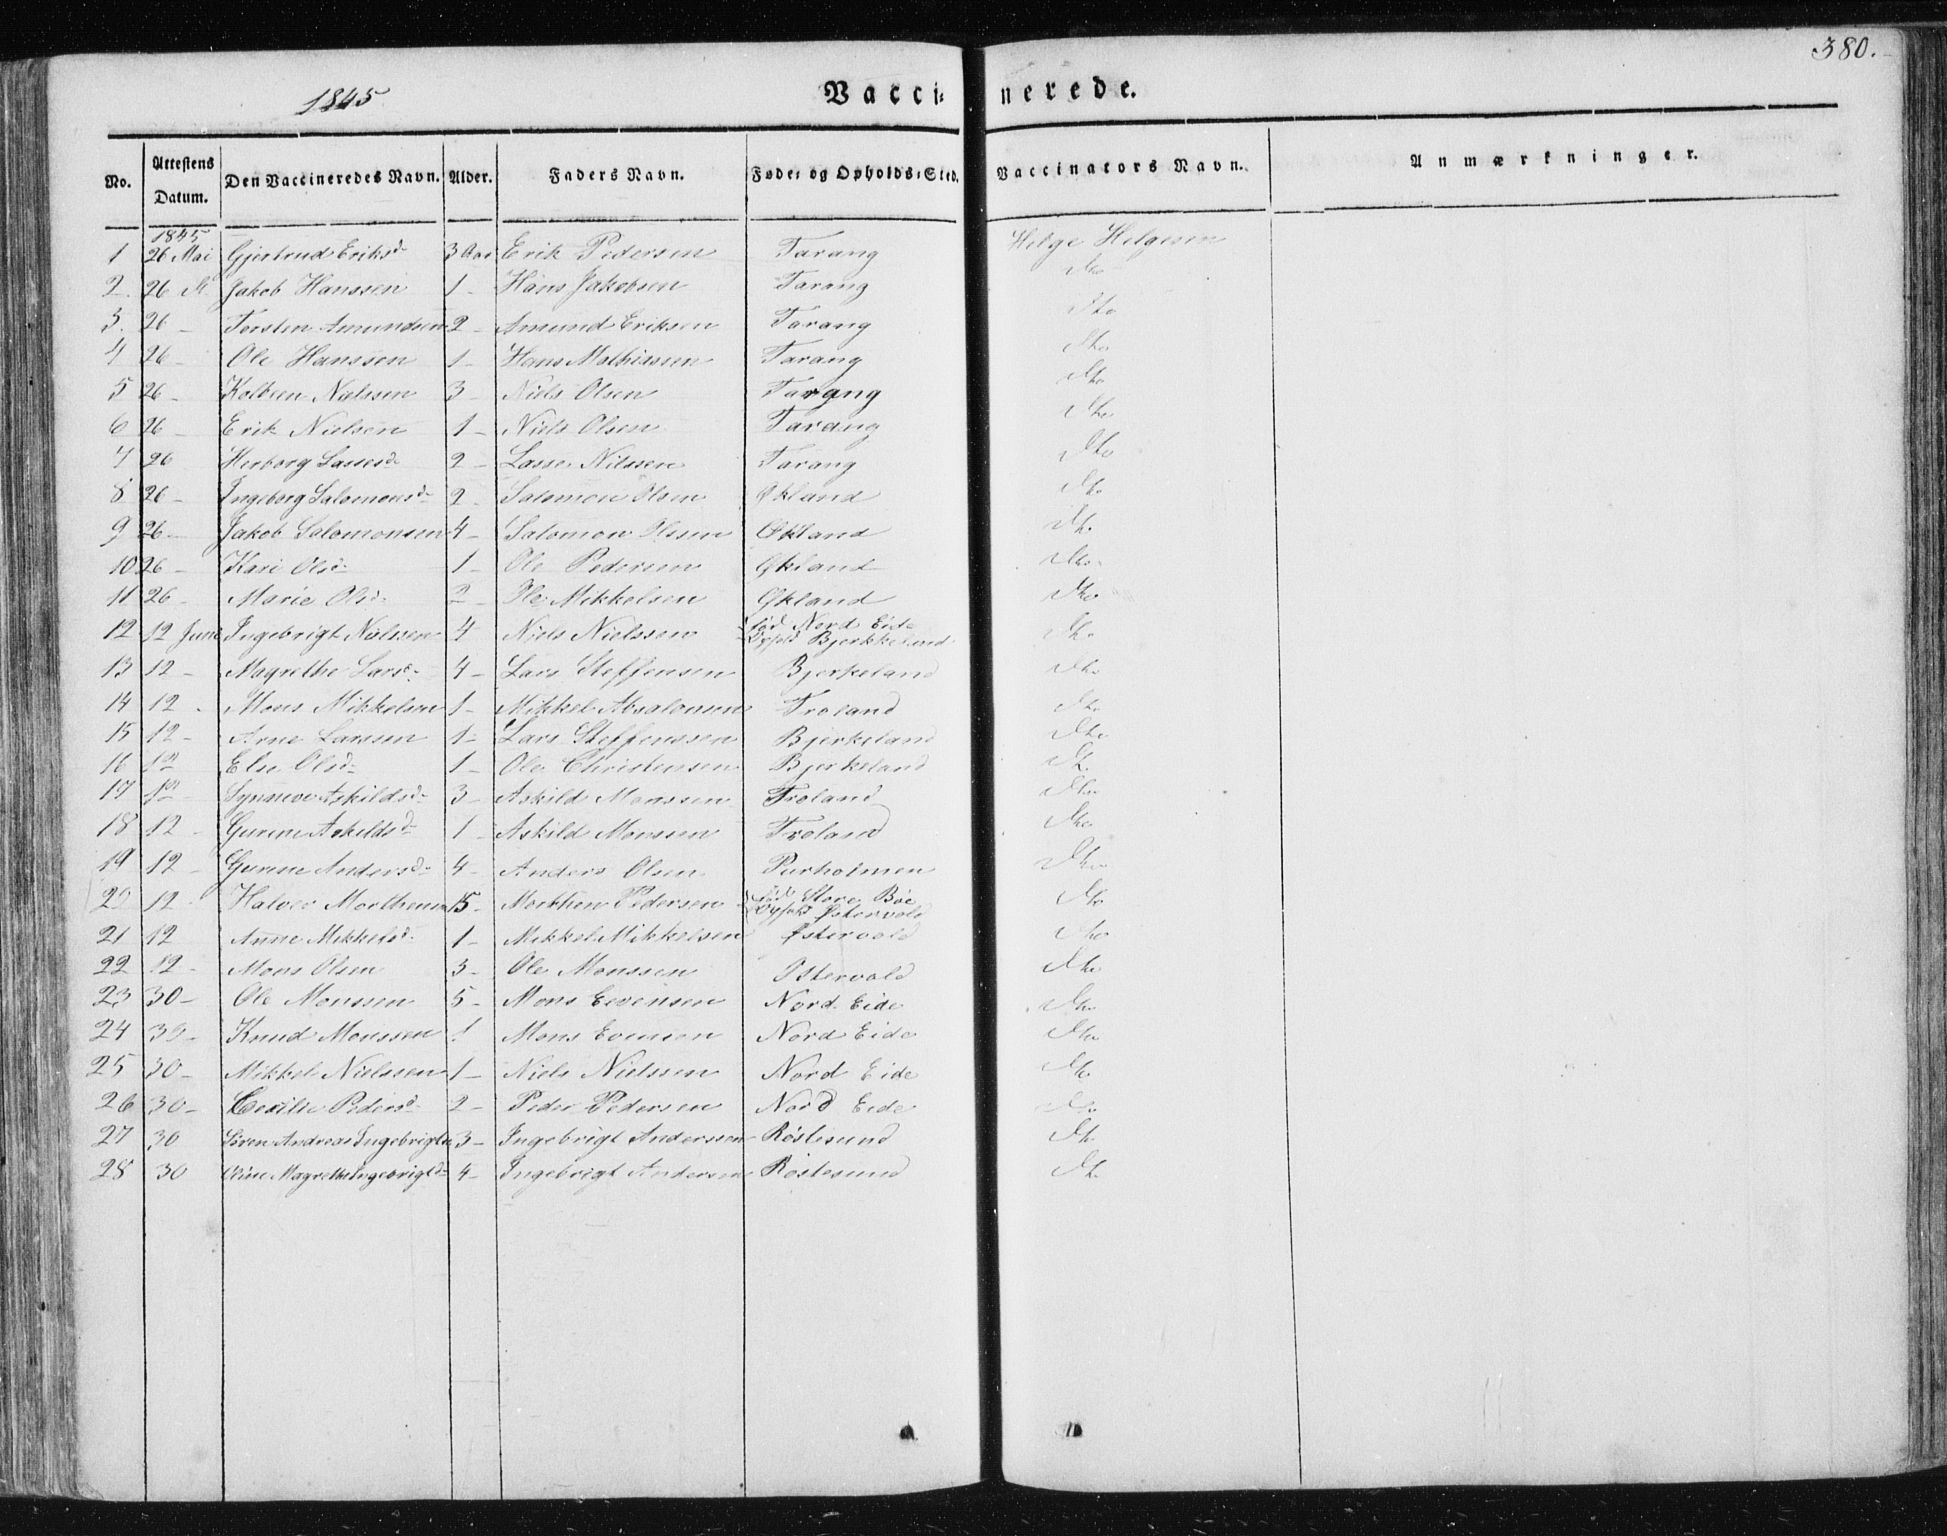 380.
1845
Vacci- nerede.
No. Attestens Datum. Den Vaccineredes Navn. Alder. Faders Navn. Føde- og Opholds-Sted. Vaccinators Navn. Anmærkninger.
1845
1 26 Mai Gjertrud Eriksd 3 Aar Erik Pedersen Tarang Helge Helgesen
2. 26 M Jakob Hanssen 1 - Hans Jakobsen Tarang Dto
3. 26 - Torsten Amundsen 2 - Amund Eriksen Tarang Dto
4 26 - Ole Hanssen 1 - Hans Mathissen Tarang Dto
5 26 - Kolbeen Nielssen 3 - Niels Olsen Tarang Dto
6 26 - Erik Nielsen 1 - Niels Olsen Tarang Dto
7 26 Herborg Lassesd 2 - Lasse Nilssen Tarang Dto
8 26 - Ingeborg Salomonsd 2 - Salomon Olsen Økland Dto
9 26 - Jakob Salomonsen 4 - Salomon Olssen Økland Dto
10 26 - Kari Olsd 1 - Ole Pedersen Økland Dto
11 26 - Marie Olsd 2 - Ole Mikkelsen Økland Dto
12 12 Juni Ingebrigt Nielssen 4 Niels Nielssen fød Nord Eide Dto
Opfold Bjerkkeland
13 12 - Magrethe Larsd 4 - Lars Steffensen Bjerkeland Dto
14 12 - Mons Mikkelsen 1 - Mikkel Absalonsen Troland Dto
15 12 - Arne Larssen 1 - Lars Steffenssen Bjerkeland Dto
16 12 Else Olsd 1 - Ole Christensen Bjerkeland Dt.
17 12 Synneve Askildsd 3 - Askild Monssen Troland Dto
18 12 - Gurine Askildsd 1 - Askild Monssen Troland Dto
19 12 - Gurine Andersd 4 - Anders Olsen Purholmen Dto
20 12 Halvor Morthensen 15 - Morthen Pedersen fød Store Bøe Dto
Opfold Østervold
21 12 Anne Mikkelsd 1 - Mikkel Mikkelsen Østervold Dto
22 12 - Mons Olsen 3 - Ole Monssen Ostervold Dto
23 30 - Ole Monssen 5 - Mons Eevensen Nord Eide Dto
24 30 - Knud Monssen 1 Mons Evensen Nord Eide Dto
25 30 - Mikkel Nielssen 1 - Niels Nielssen Nord Eide Dto
26 30 - Cecilie Pedersd 2 - Peder Pedersen Nord Eide Dto
27 30 Søren Andreas Ingebrigts 3 - Ingebrigt Anderssen Røstesund Dto
28 30 Oline Magrethe Ingebrigtd 4 - Ingebrigt Andersen Røstesund Dto